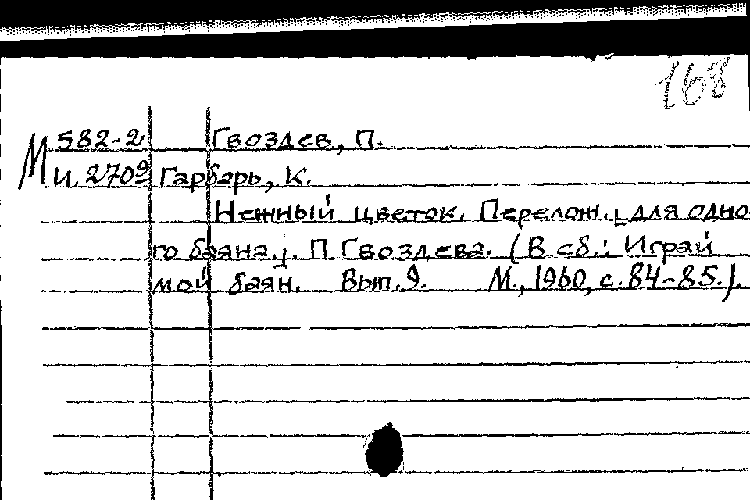 168
М 582-2 Гвоздев, П.
и. 2709 Гарбарь, К.
Нежный цветок. Перелож. [для одно
го баяна.]. П. Гвоздева. (В сб.: Играй
мой баян. Вып. 9. М., 1960, с. 84-85.).